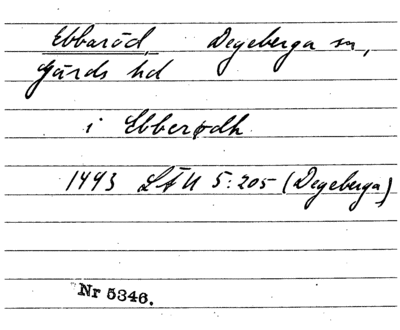 Ebbaröd, Degeberga sn,
Gärds hd
i Ebberødh
1493 LÄU 5:205 (Degeberga)
Nr 5346.